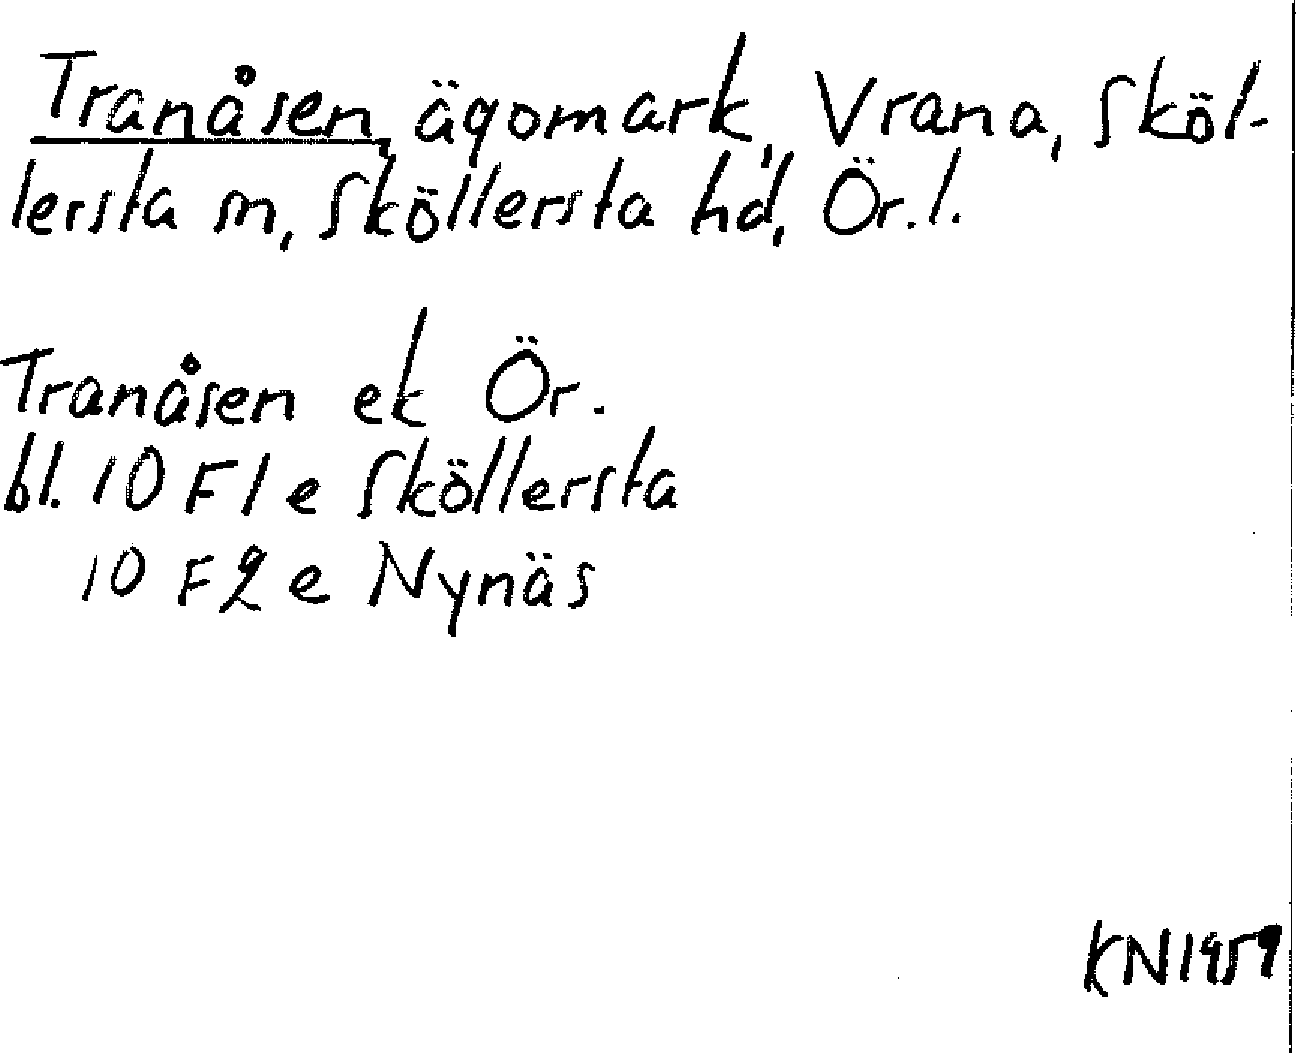 Tranåsen, ägomark, Vrana, Sköl-
lersta sn, Sköllersta hd, Ör. l.
Tranåsen ek Ör.
bl. 10 F 1 e Sköllersta
10 F 2 e Nynäs
KN 1959